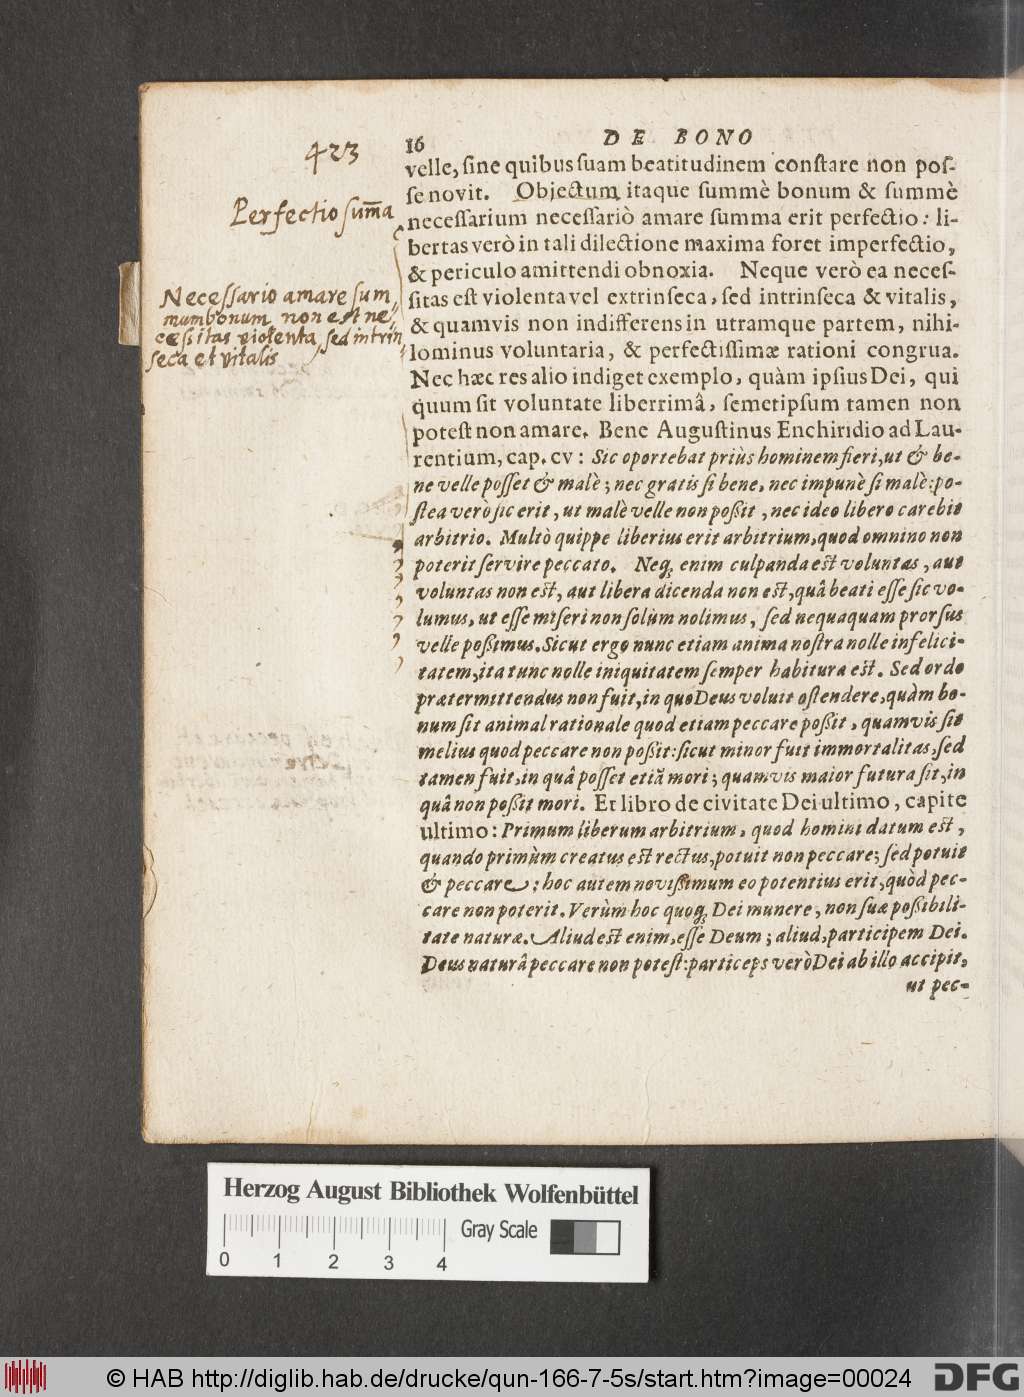 423
Perfectio sum̄a
Necessario amare sum
mum bonum non est ne-
cessitas violenta, sed intrin
seca et vitalis
16 DE BONO
velle, ſine quibus ſuam beatitudinem conſtare non poſ-
ſe novit. Objectum itaque ſummè bonum & ſummè
neceſſarium neceſſariò amare ſumma erit perfectio: li-
bertas verò in tali dilectione maxima foret imperfectio,
& periculo amittendi obnoxia. Neque verò ea neceſ-
ſitas eſt violenta vel extrinſeca, ſed intrinſeca & vitalis,
& quamvis non indifferens in utramque partem, nihi-
lominus voluntaria, & perfectiſſimæ rationi congrua.
Nec hæc res alio indiget exemplo, quàm ipſius Dei, qui
quum ſit voluntate liberrimâ, ſemetipſum tamen non
poteſt non amare. Bene Auguſtinus Enchiridio ad Lau-
rentium, cap. cv: Sic oportebat priùs hominem fieri, ut & be-
ne velle poſſet & malè; nec gratis ſi bene, nec impunè ſi malè: po-
ſtea verò ſic erit, ut malè velle non poßit, nec ideo libero carebit
arbitrio. Multò quippe liberius erit arbitrium, quod omnino non
poterit ſervire peccato. Neq; enim culpanda eſt voluntas, aut
voluntas non eſt, aut libera dicenda non eſt, quâ beati eſſe ſic vo-
lumus, ut eſſe miſeri non ſolùm nolimus, ſed nequaquam prorſus
velle poßimus. Sicut ergo nunc etiam anima noſtra nolle infelici-
tatem, ita tunc nolle iniquitatem ſemper habitura eſt. Sed ordo
prætermittendus non fuit, in quo Deus voluit oſtendere, quàm bo-
num ſit animal rationale quod etiam peccare poßit, quamvis ſit
melius quod peccare non poßit: ſicut minor fuit immortalitas, ſed
tamen fuit, in quâ poſſet etiã mori; quamvis maior futura ſit, in
quâ non poßit mori. Et libro de civitate Dei ultimo, capite
ultimo: Primum liberum arbitrium, quod homini datum eſt,
quando primùm creatus eſt rectus, potuit non peccare; ſed potuit
& peccare: hoc autem novißimum eo potentius erit, quòd pec-
care non poterit. Verùm hoc quoq; Dei munere, non ſuæ poßibili-
tate naturæ. Aliud eſt enim, eſſe Deum; aliud, participem Dei.
Deus naturâ peccare non poteſt: particeps verò Dei ab illo accipit,
ut pec-
Herzog August Bibliothek Wolfenbüttel
Gray Scale
0 1 2 3 4
© HAB http://diglib.hab.de/drucke/qun-166-7-5s/start.htm?image=00024
DFG